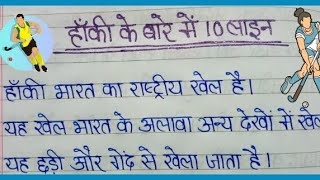 हॉकी के बारे में 10 लाइन
हॉकी भारत का राष्ट्रीय खेल है।
यह खेल भारत के अलावा अन्य देखों में खेल
यह छड़ी और गेंद से खेला जाता है।